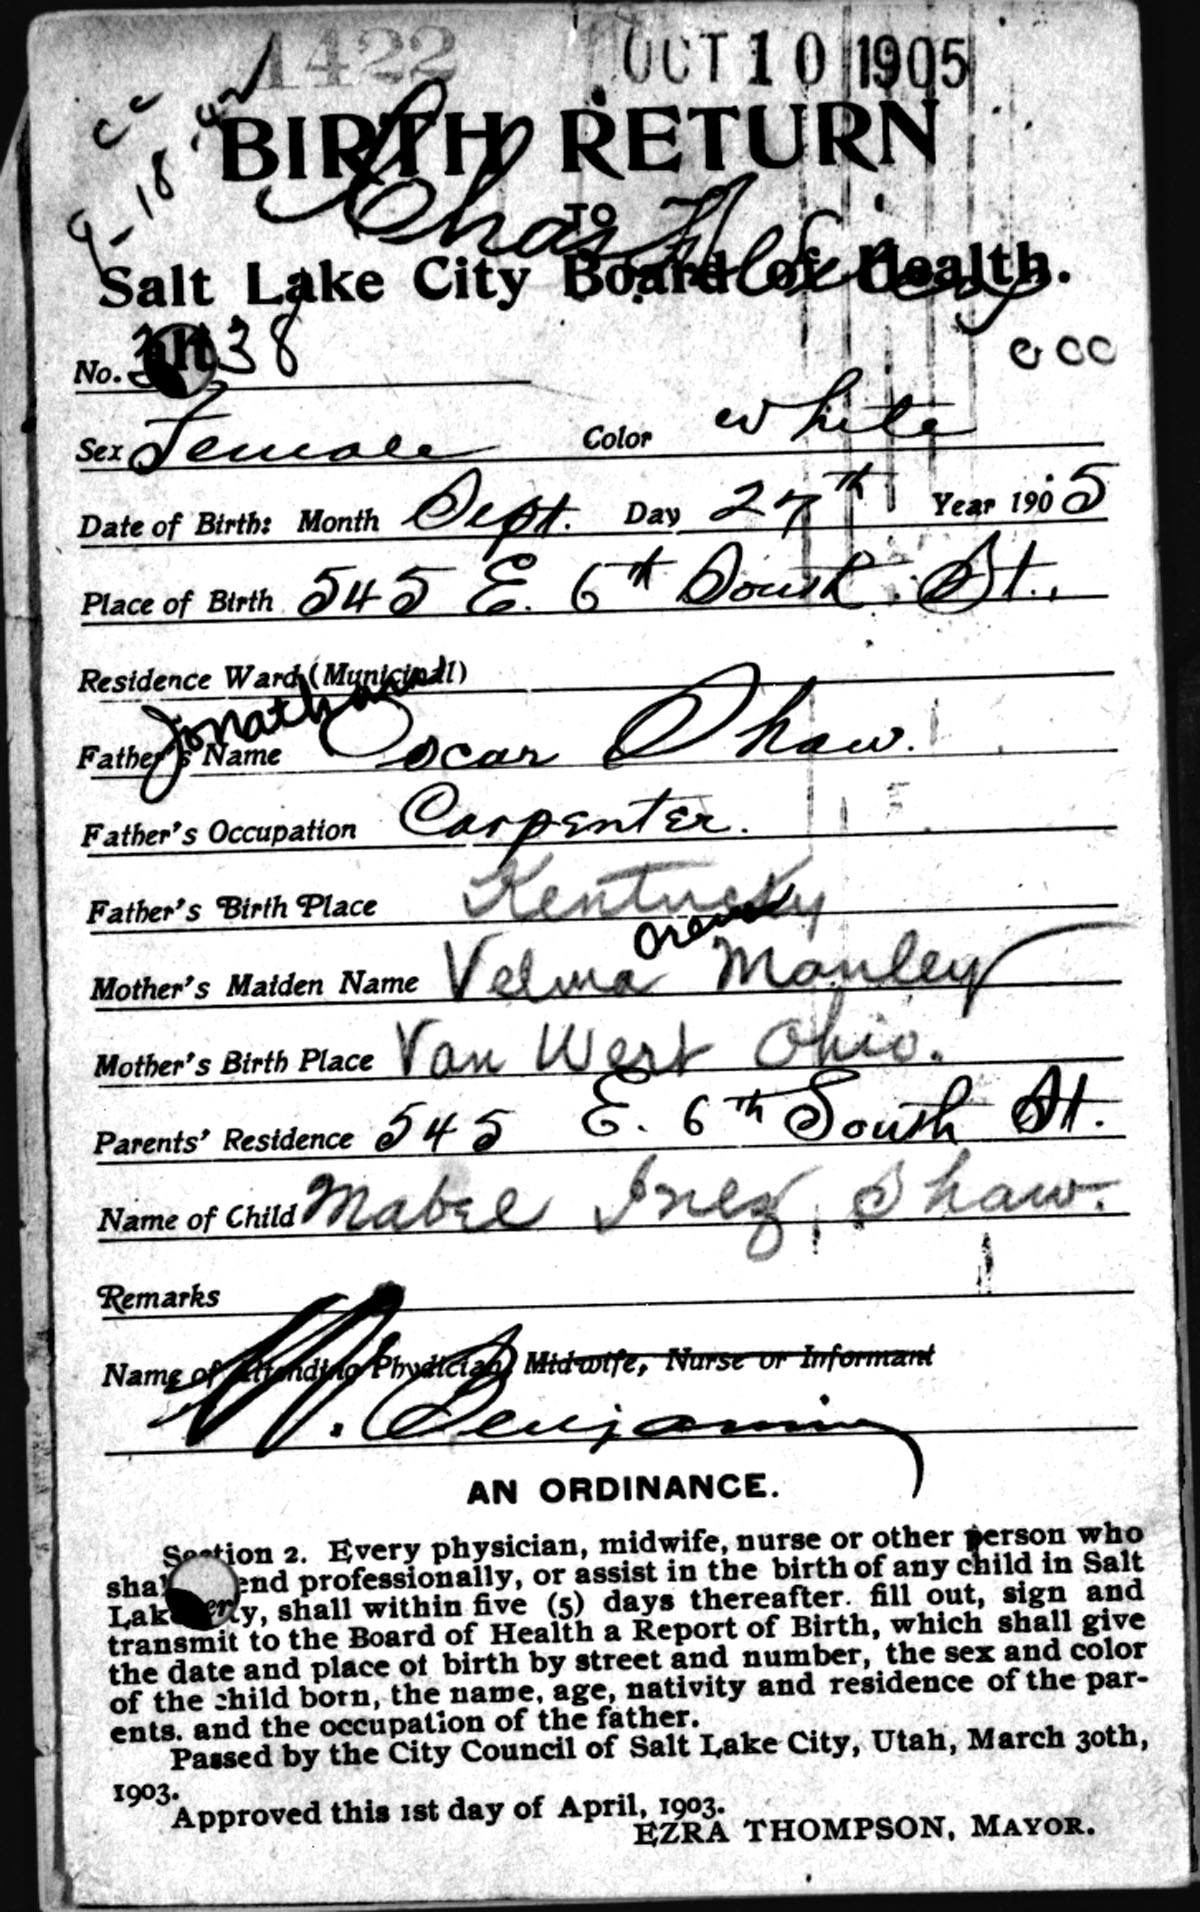 1422 OCT 10 1905
BIRTH RETURN
TO
Salt Lake City Board of Health.
No. 38
Sex Female Color white
Date of Birth: Month Sept. Day 27th Year 1905
Place of Birth 545 E. 6th South St.,
Residence Ward (Municipal)
Jonathan
Father's Name Oscar Shaw.
Father's Occupation Carpenter.
Father's Birth Place Kentucky
Mother's Maiden Name Velma Manley
Mother's Birth Place Van Wert Ohio.
Parents' Residence 545 E. 6th South St.
Name of Child Mabel Inez Shaw.
Remarks
Name of Attending Physician, Midwife, Nurse or Informant
W. Benjamin
AN ORDINANCE.
Section 2. Every physician, midwife, nurse or other person who
shall end professionally, or assist in the birth of any child in Salt
Lake ty, shall within five (5) days thereafter. fill out, sign and
transmit to the Board of Health a Report of Birth, which shall give
the date and place of birth by street and number, the sex and color
of the child born, the name, age, nativity and residence of the par-
ents. and the occupation of the father.
Passed by the City Council of Salt Lake City, Utah, March 30th,
1903.
Approved this 1st day of April, 1903.
EZRA THOMPSON, MAYOR.